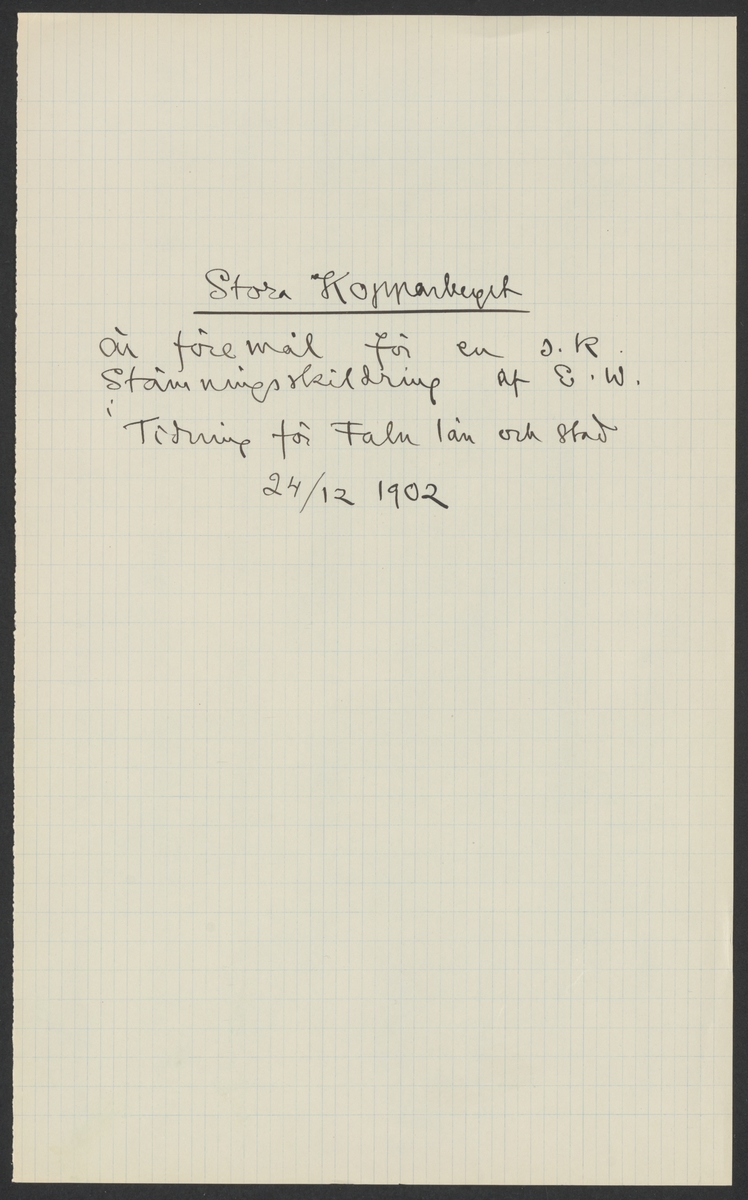 Stora Kopparberget
är föremål för en s.k.
Stämningsskildring af E.W.
i
Tidning för Falu län och stad
24/12 1902